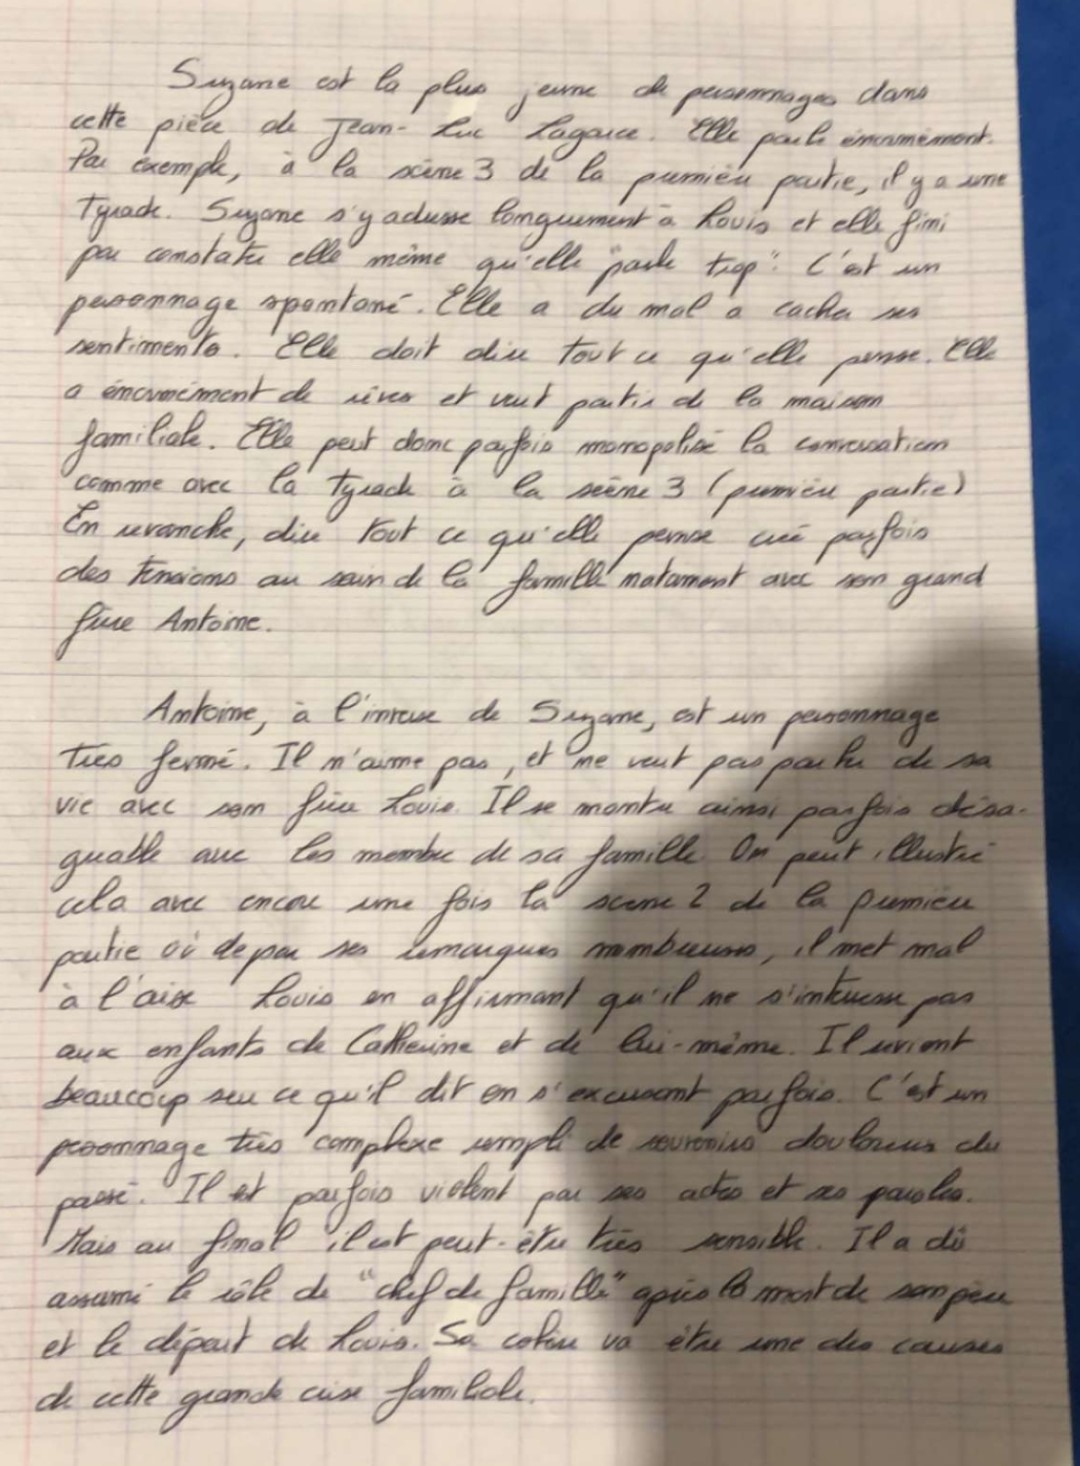 Suzane est la plus jeune de personnages dans
cette pièce de Jean-Luc Lagarce. Elle parle énormément.
Par exemple, à la scène 3 de la première partie, il y a une
Tyrade. Suzane s'y adresse longuement à Louis et elle fini
par constater elle même qu'elle "parle trop". C'est un
personnage spontané. Elle a du mal a cacher ses
sentiments. Elle doit dire tout ce qu'elle pense. Elle
a énormément de rêves et veut partir de la maison
familiale. Elle peut donc parfois monopolisé la conversation
comme avec la tyrade à la scène 3 (première partie)
En revanche, dire tout ce qu'elle pense créé parfois
des tensions au sein de la famille notament avec son grand
frère Antoine.
Antoine, à l'inverse de Suzane, est un personnage
très fermé. Il n'aime pas, et ne veut pas parler de sa
vie avec son frère Louis. Il se montre ainsi parfois désa-
gréable avec les membre de sa famille. On peut illustré
cela avec encore une fois la scène 2 de la première
partie où de par ses remarques nombreuses, il met mal
à l'aise Louis en affirmant qu'il ne s'intéresse pas
aux enfants de Catherine et de lui-même. Il revient
beaucoup sur ce qu'il dit en s'excusant parfois. C'est un
personnage très complexe rempli de souvenirs douloureux du
passé. Il est parfois violent par ses actes et ses paroles.
Mais au final il est peut-être très sensible. Il a dû
assumé le rôle de "chef de famille" après la mort de son père
et le départ de Louis. Sa colère va être une des causes
de cette grande crise familiale.